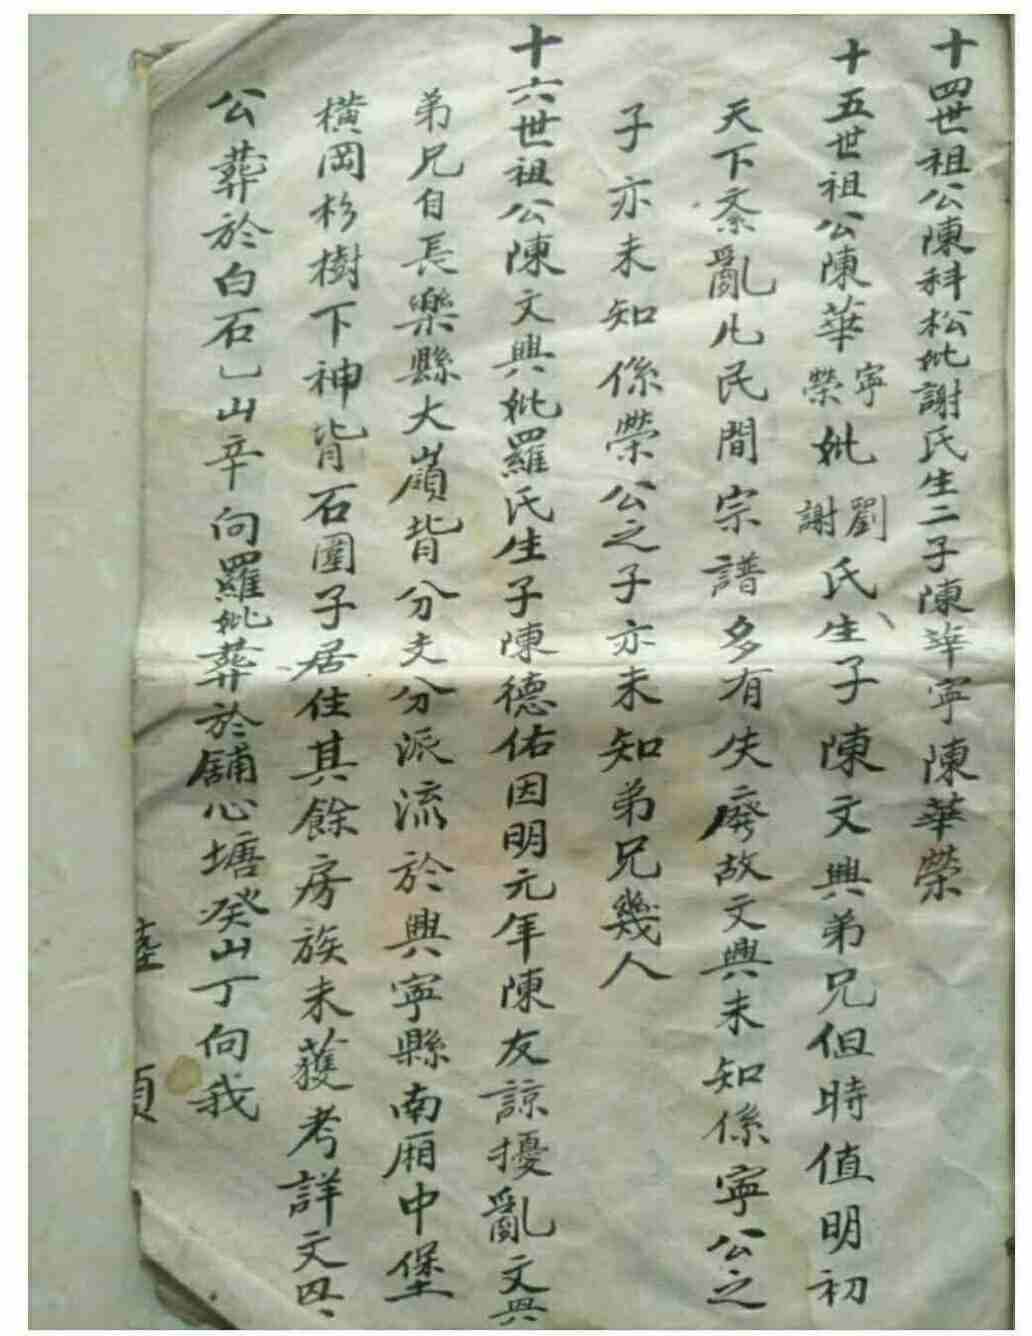 十四世祖公陳科松妣謝氏生二子陳華寧陳華榮
十五世祖公陳華寧榮妣劉謝氏生子陳文興弟兄但時值明初
天下紊亂凡民間宗譜多有失廢故文興未知係寧公之
子亦未知係榮公之子亦未知弟兄幾人
十六世祖公陳文興妣羅氏生子陳德佑因明元年陳友諒擾亂文興
弟兄自長樂縣大嶺背分支分派流於興寧縣南廂中堡
橫岡杉樹下神背石圍子居住其餘房族未獲考詳文
公葬於白石乚山辛向羅妣葬於舖心塘癸山丁向我